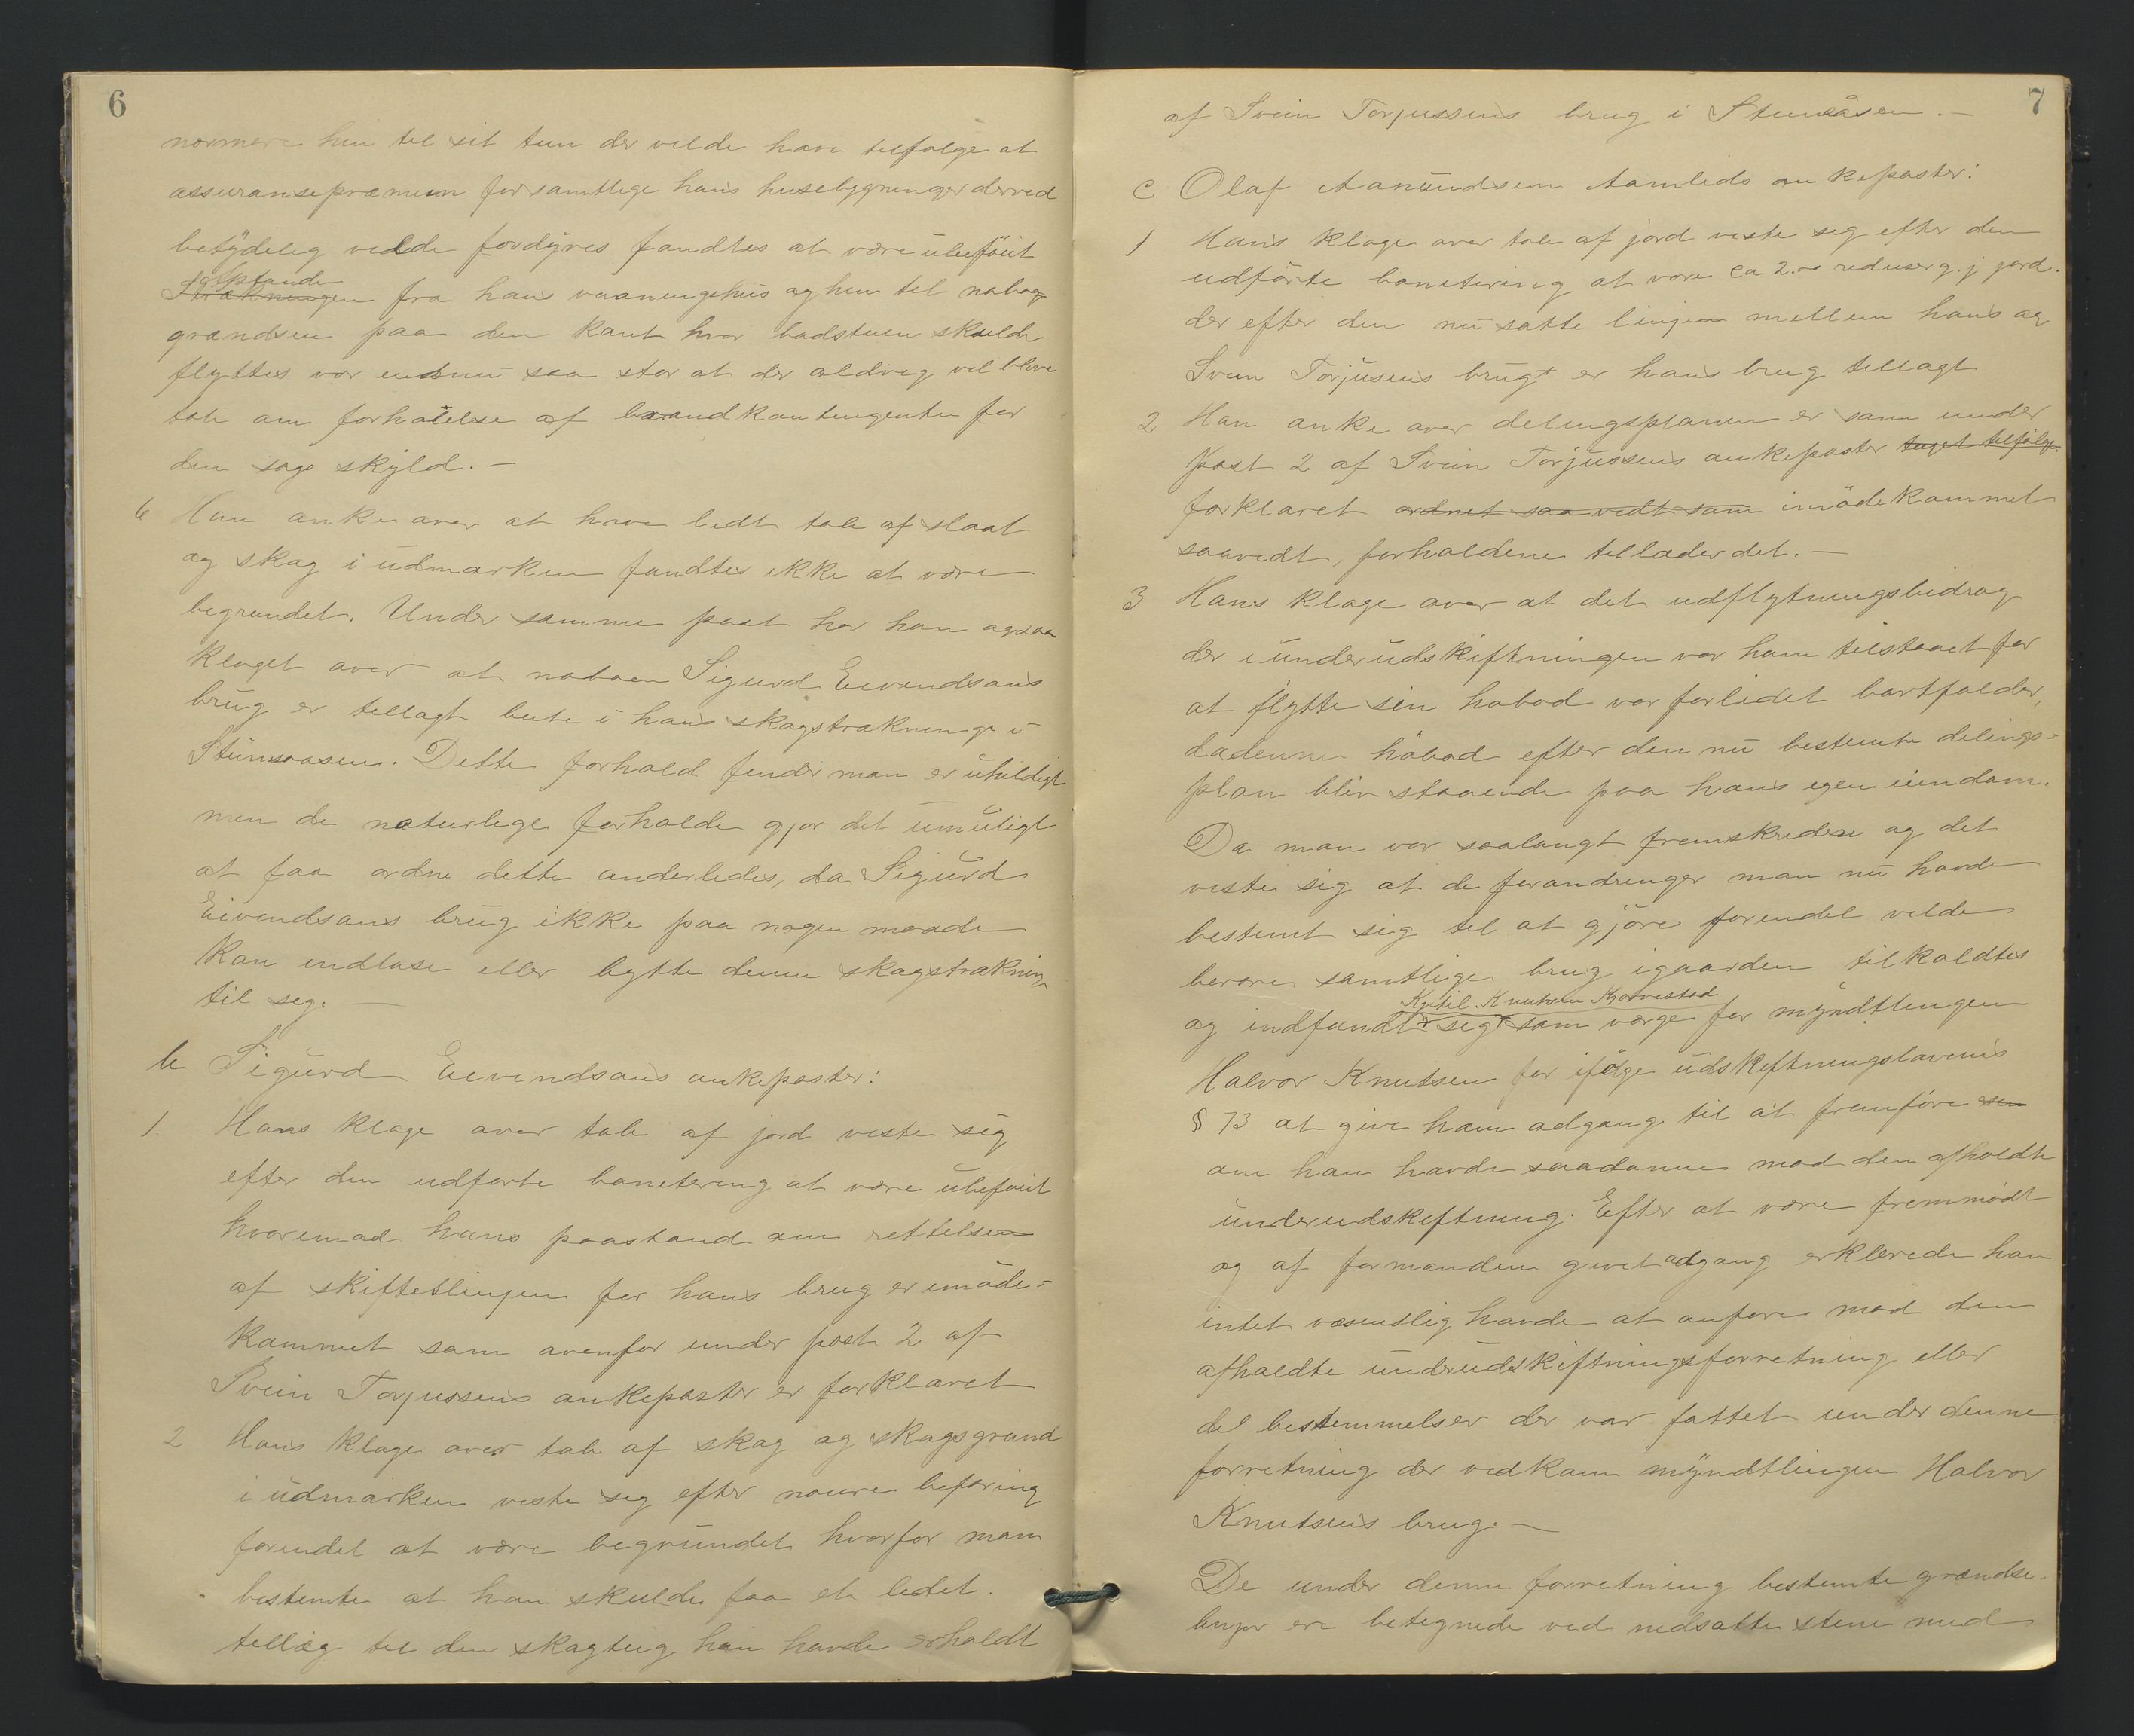 6
nærmere hen til sit tun der vilde have tilfølge at
assuransepræmien for samtlige hans husebygninger derved
betydelig vilde fordyres fandtes at være ubeföiet
Afstanden
Strækningen fra hans vaaningshus og hen til nabog
grændsen paa den kant hvor badstuen skulde
flyttes var endnu saa stor at der aldrig vil blive
tale om forhøielse af brandkontingenten for
den sags skyld. —
6 Han anke over at have lidt tab af slaat
og skog i udmarken fandtes ikke at være
begrundet. Under samme post har han ogsaa
klaget over at naboen Sigurd Eivendsøns
brug er tillagt beite i hans skogstrækninge i
Stuinsaasen. Dette forhold finder man er uheldigt
men de naturlige forholde gjør det umuligt
at faa ordne dette anderledes, da Sigurd
Eivendsøns brug ikke paa nogen maade
kan indløse eller bytte denne skogstrækning
til sig. —
b Sigurd Eivendsøns ankeposter:
1. Hans klage over tab af jord viste sig
efter den udførte bonitering at være ubeføiet
hvoremod hans paastand om rettelsen
af skiftetlinjen for hans brug er imöde-
kommet som ovenfor under post 2 af
Svein Torjussens ankeposter er forklaret
2 Hans klage over tab af skog og skogsgrund
i udmarken viste sig efter nøiere befaring
forendel at være begrundet hvorfor man
bestemte at han skulde faa et lidet
tillæg til den skogteig han havde erholdt
7
af Svein Torjussens brug i Stensåsen. —
c Olaf Aanundsen Aamlids ankeposter:
1 Hans klage over tab af jord viste sig efter den
udförte bonitering at være ca 2.00 reduser g. j jord
der efter den nu satte linjen mellem hans og
Svein Torjusens brug er hans brug tillagt
2 Han anke over delingsplanen er som under
Post 2 af Svein Torjussens ankeposter taget tilfølge
forklaret ordnet saavidt som imödekommet
saavidt, forholdene tillader det. —
3 Hans klage over at det udflytningsbidrag
der i underudskiftningen var ham tilstaaet for
at flytte sin høbod var forlidet bortfalder,
da denne höbod efter den nu bestemte delings-
plan blir staaende paa hans egen eiendom.
Da man var saalangt fremskreden og det
viste sig at de forandringer man nu havde
bestemt sig til at gjöre forendel vilde
berøre samtlige brug i gaarden tilkaldtes
Kjetil Knutsen Kjørvestad
og indfandt sig som værge for myndtlingen
Halvor Knutsen for ifølge udskiftningslovens
§ 73 at give ham adgang til at fremføre sin
om han havde saadanne mod den afholdte
underudskiftning. Efter at være fremmödt
og af formanden givet adgang erklærede han
intet væsentlig havde at anføre mod den
afholdte underudskiftningsforretning eller
de bestemmelser der var fattet under denne
forretning der vedkom myndtlingen Halvor
Knutsens brug. —
De under denne forretning bestemte grændse-
linjer ere betegnede ved nedsatte stene med